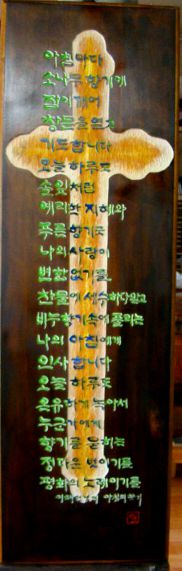 아침마다
소나무 향기에
잠이 깨어
창문을 열고
기도합니다
오늘 하루도
솔잎처럼
예리한 지혜와
푸른 향기로
나의 사랑이
변함 없기를
찬물에 세수하다 말고
비누향기속에 풀리는
나의 아침에게
인사합니다
오늘 하루도
온유하게 녹아서
누군가에게
향기를 묻히는
정다운 벗이기를
평화의 노래이기를